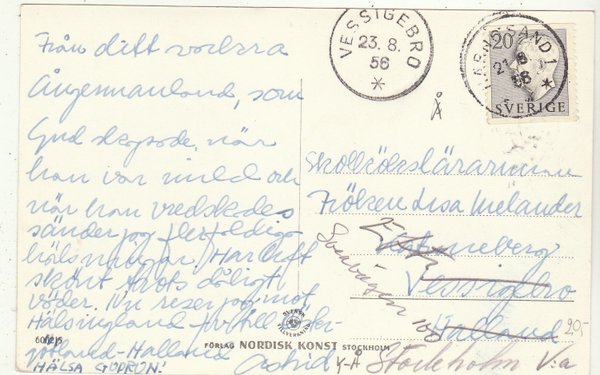 Från ditt vackra
Ångermanland, som
Gud skapade, när
han var mild och
när han vredgades
sänder jag flerfaldiga
hälsningar. Har haft
skönt trots dåligt
väder. Nu reser jag mot
Hälsingland
Halland
Astrid
HÄLSA GUDRUN!
VESSIGEBRO
23.8.
56
HÄRNÖSAND 1
21 8
56
20
SVERIGE
Skolkökslärarinnan
Fröken Lisa Melander
Vessigebro
Halland
Sveavägen
Stockholm Va
20:-
FÖRLAG NORDISK KONST STOCKHOLM